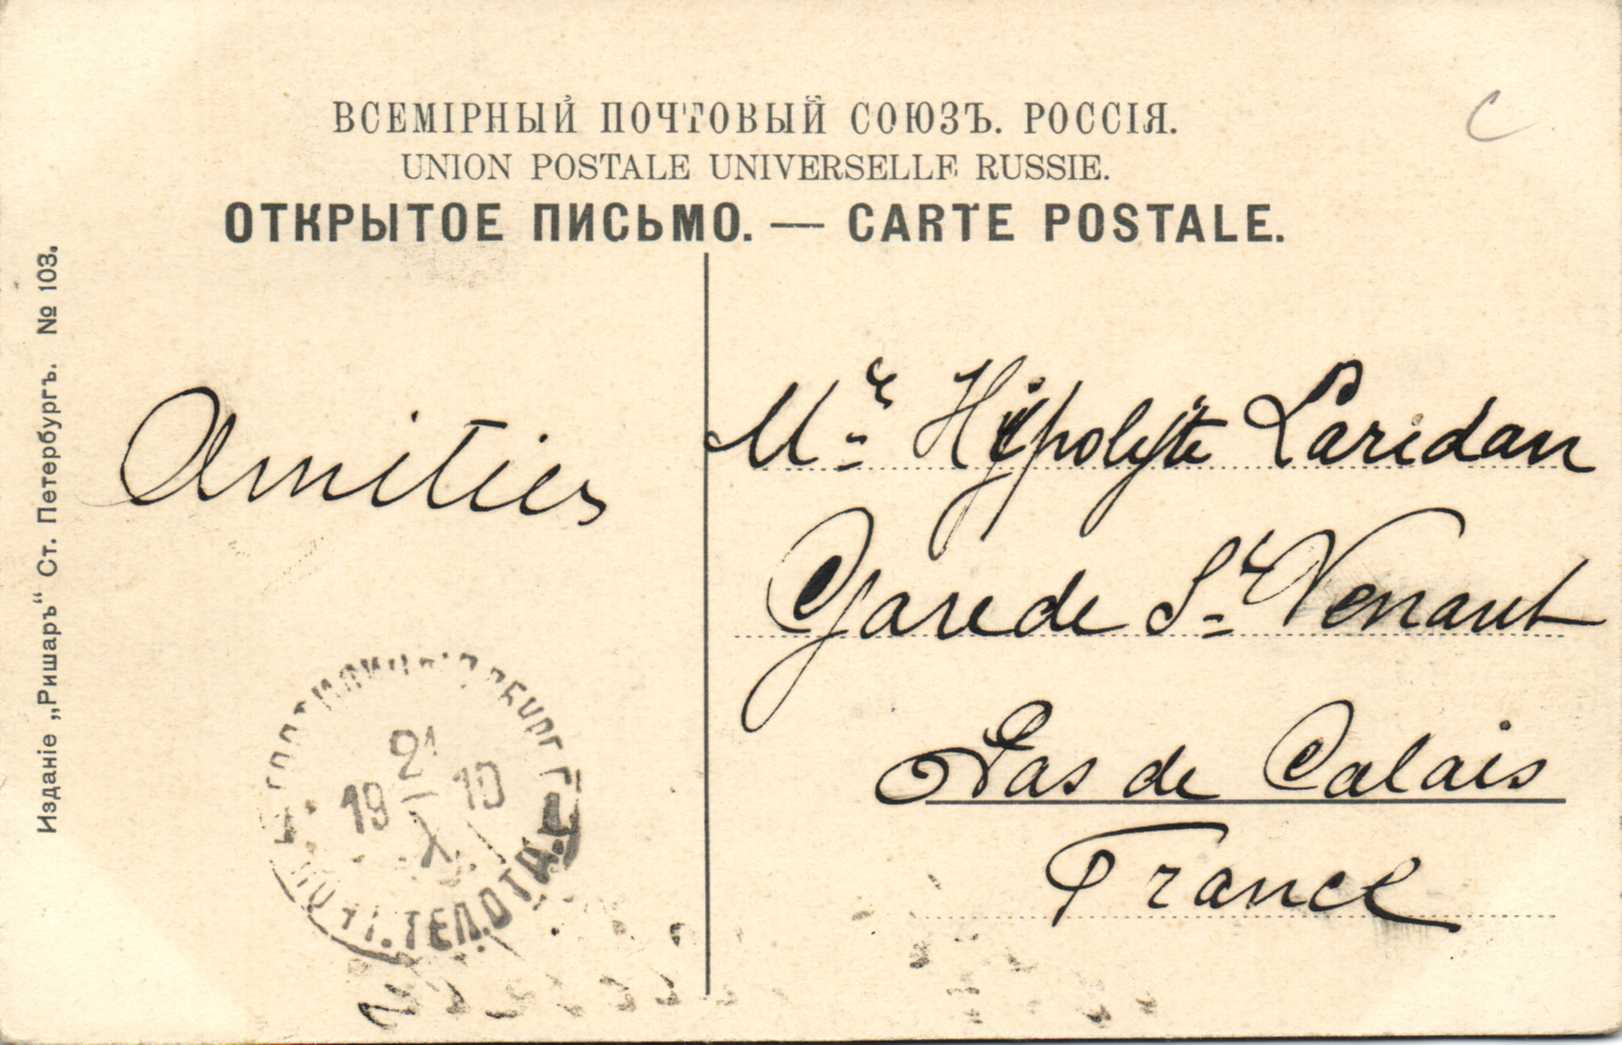 ВСЕМІРНЫЙ ПОЧТОВЫЙ СОЮЗЪ. РОССІЯ.
UNION POSTALE UNIVERSELLE RUSSIE.
ОТКРЫТОЕ ПИСЬМО. — CARTE POSTALE.
Изданіе „Ришаръ“ Ст. Петербургъ. № 103.
C
Amitiés
Mr Hippolyte Laridan
Gare de St Venant
Pas de Calais
France
21
19 10
X
ПОЧТ. ТЕЛ. ОТД.